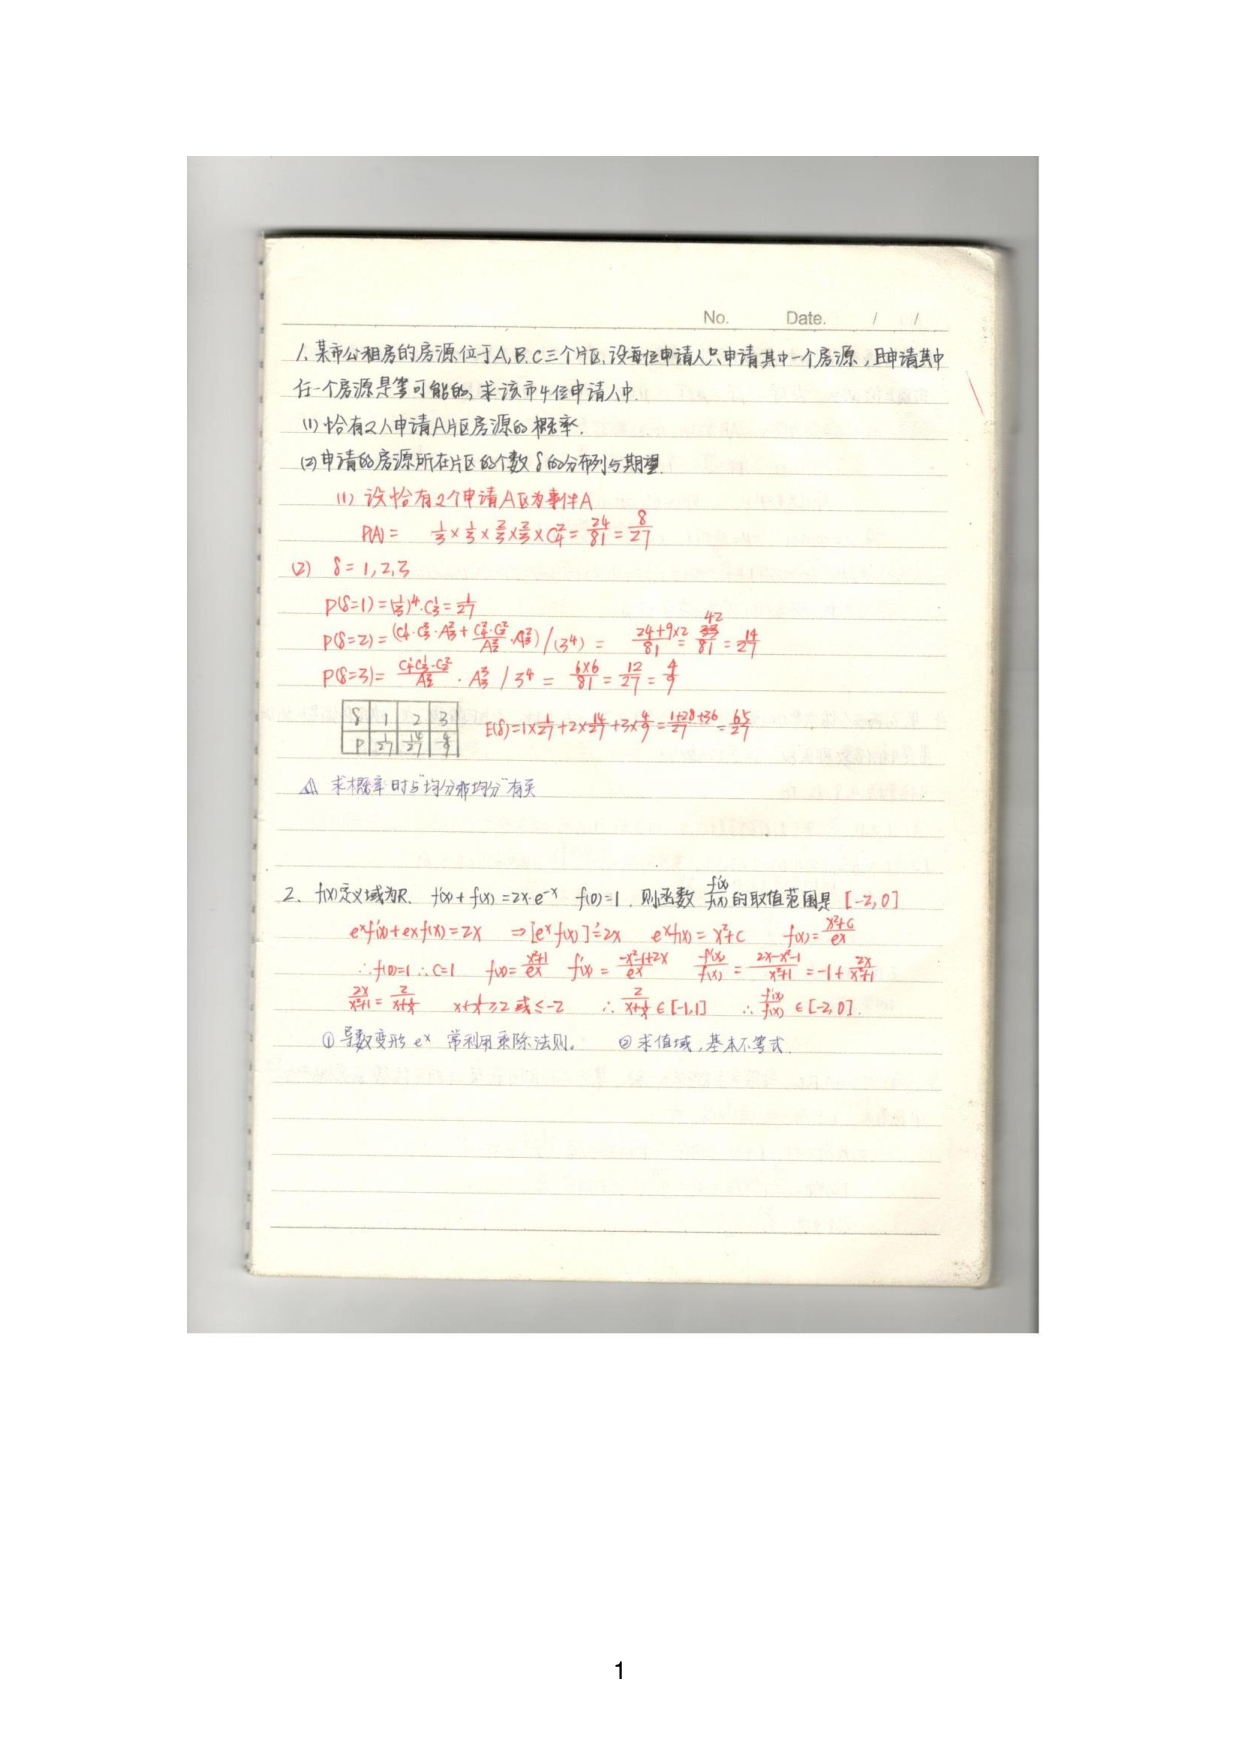 No. Date. / /
1. 某市公租房的房源位于A.B.C三个片区,设每位申请人只申请其中一个房源,且申请其中
任一个房源是等可能的,求该市4位申请人中.
(1) 恰有2人申请A片区房源的概率.
(2) 申请的房源所在片区的个数δ的分布列与期望.
(1) 设恰有2个申请A区为事件A
P(A) = 1/3 × 1/3 × 2/3 × 2/3 × C₄² = 24/81 = 8/27
(2) δ = 1, 2, 3
P(δ=1) = (1/3)⁴·C₃¹ = 1/27
P(δ=2) = (C₄¹·C₃²·A₂² + C₄²·C₂²/A₂²·A₃²)/(3⁴) = 24+9×2/81 = 42/81 = 14/27
P(δ=3) = C₄¹C₃¹·C₂²/A₂² · A₃³ / 3⁴ = 6×6/81 = 12/27 = 4/9
δ 1 2 3
P 1/27 14/27 4/9
E(δ) = 1×1/27 + 2×14/27 + 3×4/9 = 1+28+36/27 = 65/27
求概率时与"均分非均分"有关
2. f(x)定义域为R. f'(x) + f(x) = 2x·e⁻ˣ f(0) = 1. 则函数 f'(x)/f(x) 的取值范围是 [-2,0]
eˣf'(x) + eˣf(x) = 2x ⇒ [eˣf(x)]' = 2x eˣf(x) = x²+C f(x) = x²+C/eˣ
∵ f(0)=1 ∴ C=1 f(x) = x²+1/eˣ f'(x) = -x²-1+2x/eˣ f'(x)/f(x) = 2x-x²-1/x²+1 = -1 + 2x/x²+1
2x/x²+1 = 2/x+1/x x+1/x ≥ 2 或 ≤ -2 ∴ 2/x+1/x ∈ [-1,1] ∴ f'(x)/f(x) ∈ [-2,0].
① 导数变形 eˣ 常利用乘除法则. ② 求值域,基本不等式.
1